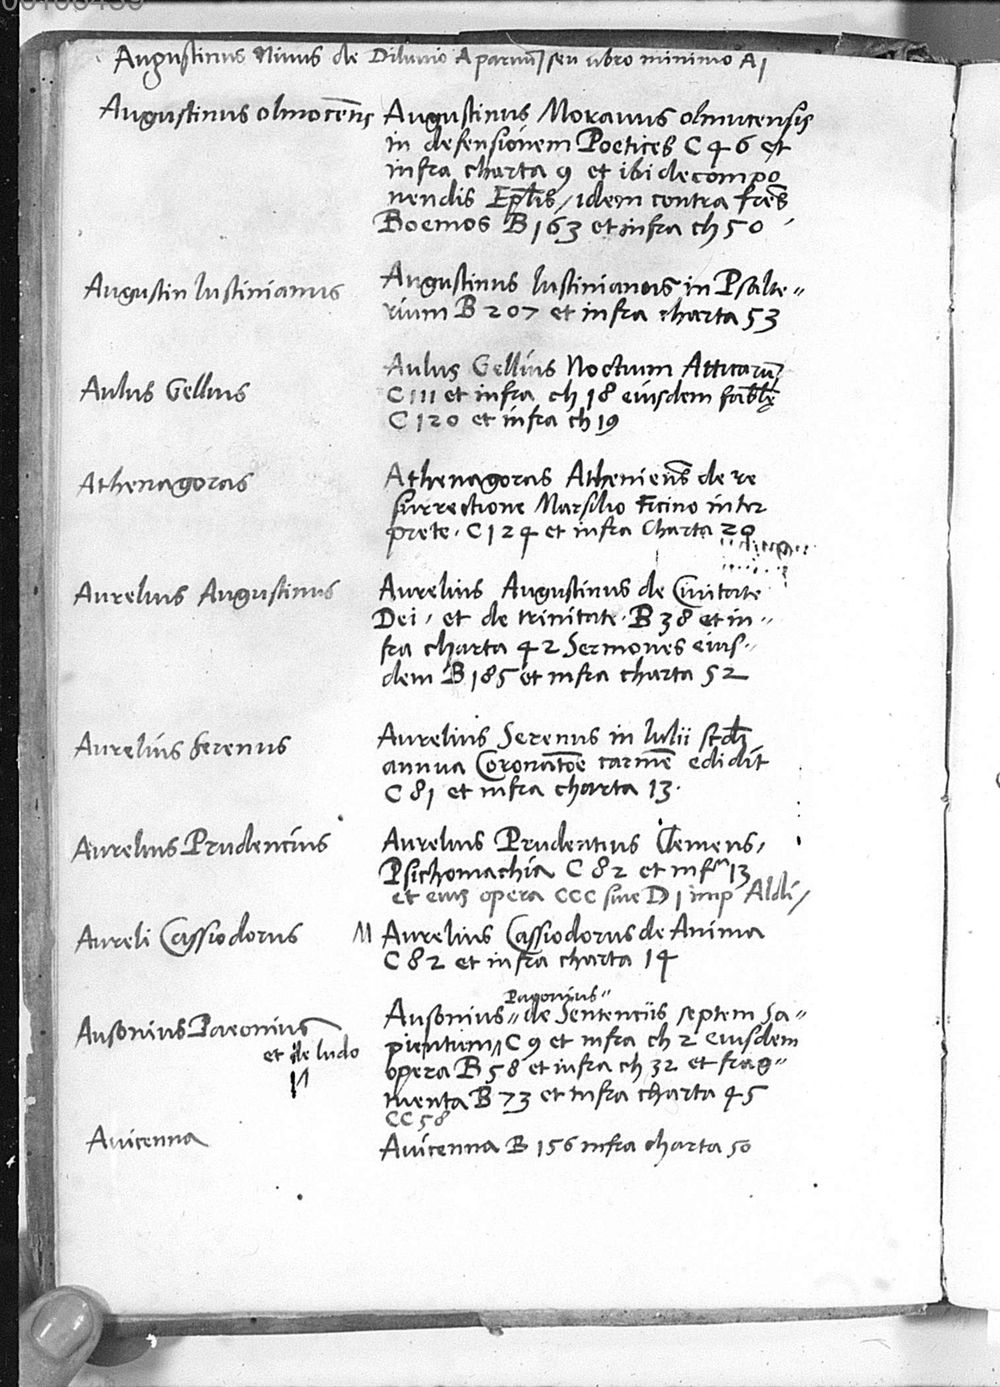 Augustinus Nivus de Diluvio A parvũ seu libro minimo A 1
Augustinus olmocēns
Augustinus Moravus olmucensis
in defensionem Poetices C 46 et
infra charta 9 et ibi de compo
nendis Ep̄lis / idem contra fr̄es
Boemos B 163 et infra ch 50
Augustin Iustinianus
Augustinus Iustinianus in Psalte〃
rium B 207 et infra charta 53
Aulus Gellius
Aulus Gellius Noctium Atticarũ
C 111 et infra ch 18 eiusdem
C 120 et infra ch 19
Athenagoras
Athenagoras Atheniens̄ de re
surrectione Marsilio Ficino inter
prete. C 124 et infra Charta 20
Aurelius Augustinus
Aurelius Augustinus de Civitate
Dei, et de trinitate. B 38 et in〃
fra charta 42 Sermones eius〃
dem B 185 et infra charta 52
Aurelius Serenus
Aurelius Serenus in Iulii
annua Coronatōe carmē edidit
C 81 et infra charta 13.
Aurelius Prudencius
Aurelius Prudentius Clemens,
Psichomachia C 82 et infra 13
et eius opera CCC sive D 1 imp Aldi /
Aureli Cassiodorus
M Aurelius Cassiodorus de Anima
C 82 et infra charta 14
Ausonius Paeonius
et de ludo
Paeonius〃
Ausonius〃 de Sentenciis septem Sa〃
pientum, C 9 et infra ch 2 eiusdem
opera B 58 et infra ch 32 et frag〃
menta B 73 et infra charta 45
CC 58
Avicenna
Avicenna B 156 infra charta 50